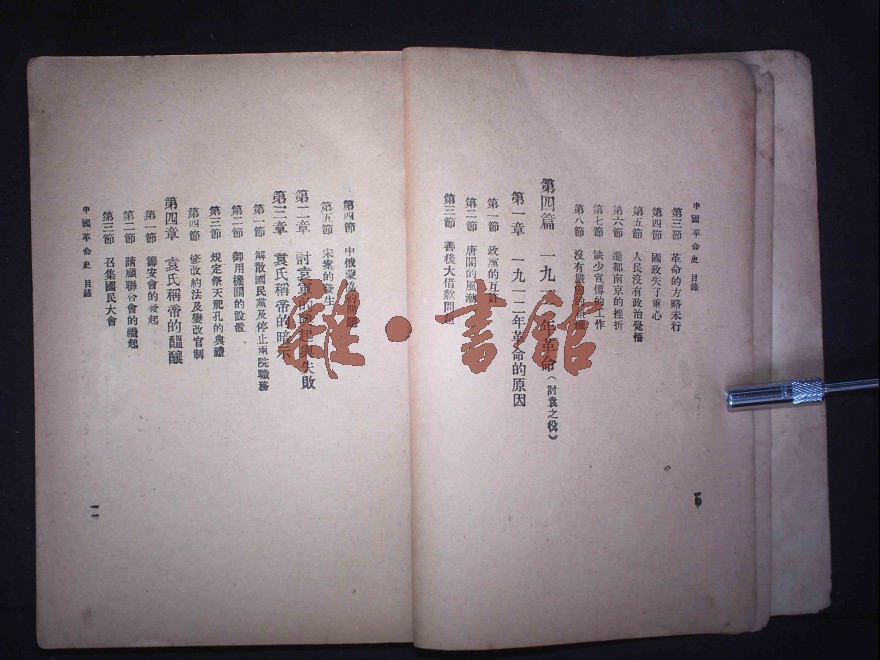 中國革命史 目錄
第三節 革命的方略未行
第四節 國政失了重心
第五節 人民沒有政治覺悟
第六節 遷都南京的挫折
第七節 缺少宣傳的工作
第八節 沒有嚴
第四篇 一九一 年革命(討袁之役)
第一章 一九一二年革命的原因
第一節 政黨的互
第二節 唐閣的風潮
第三節 善後大借款問題
第四節 中俄蒙 的問題
第五節 宋案的發生
第二章 討袁軍的 起與失敗
第三章 袁氏稱帝的暗示
第一節 解散國民黨及停止兩院職務
第二節 御用機關的設置
第三節 規定祭天祀孔的典禮
第四節 修改約法及變改官制
第四章 袁氏稱帝的醞釀
第一節 籌安會的發起
第二節 請願聯合會的繼起
第三節 召集國民大會
中國革命史 目錄
雅·書館